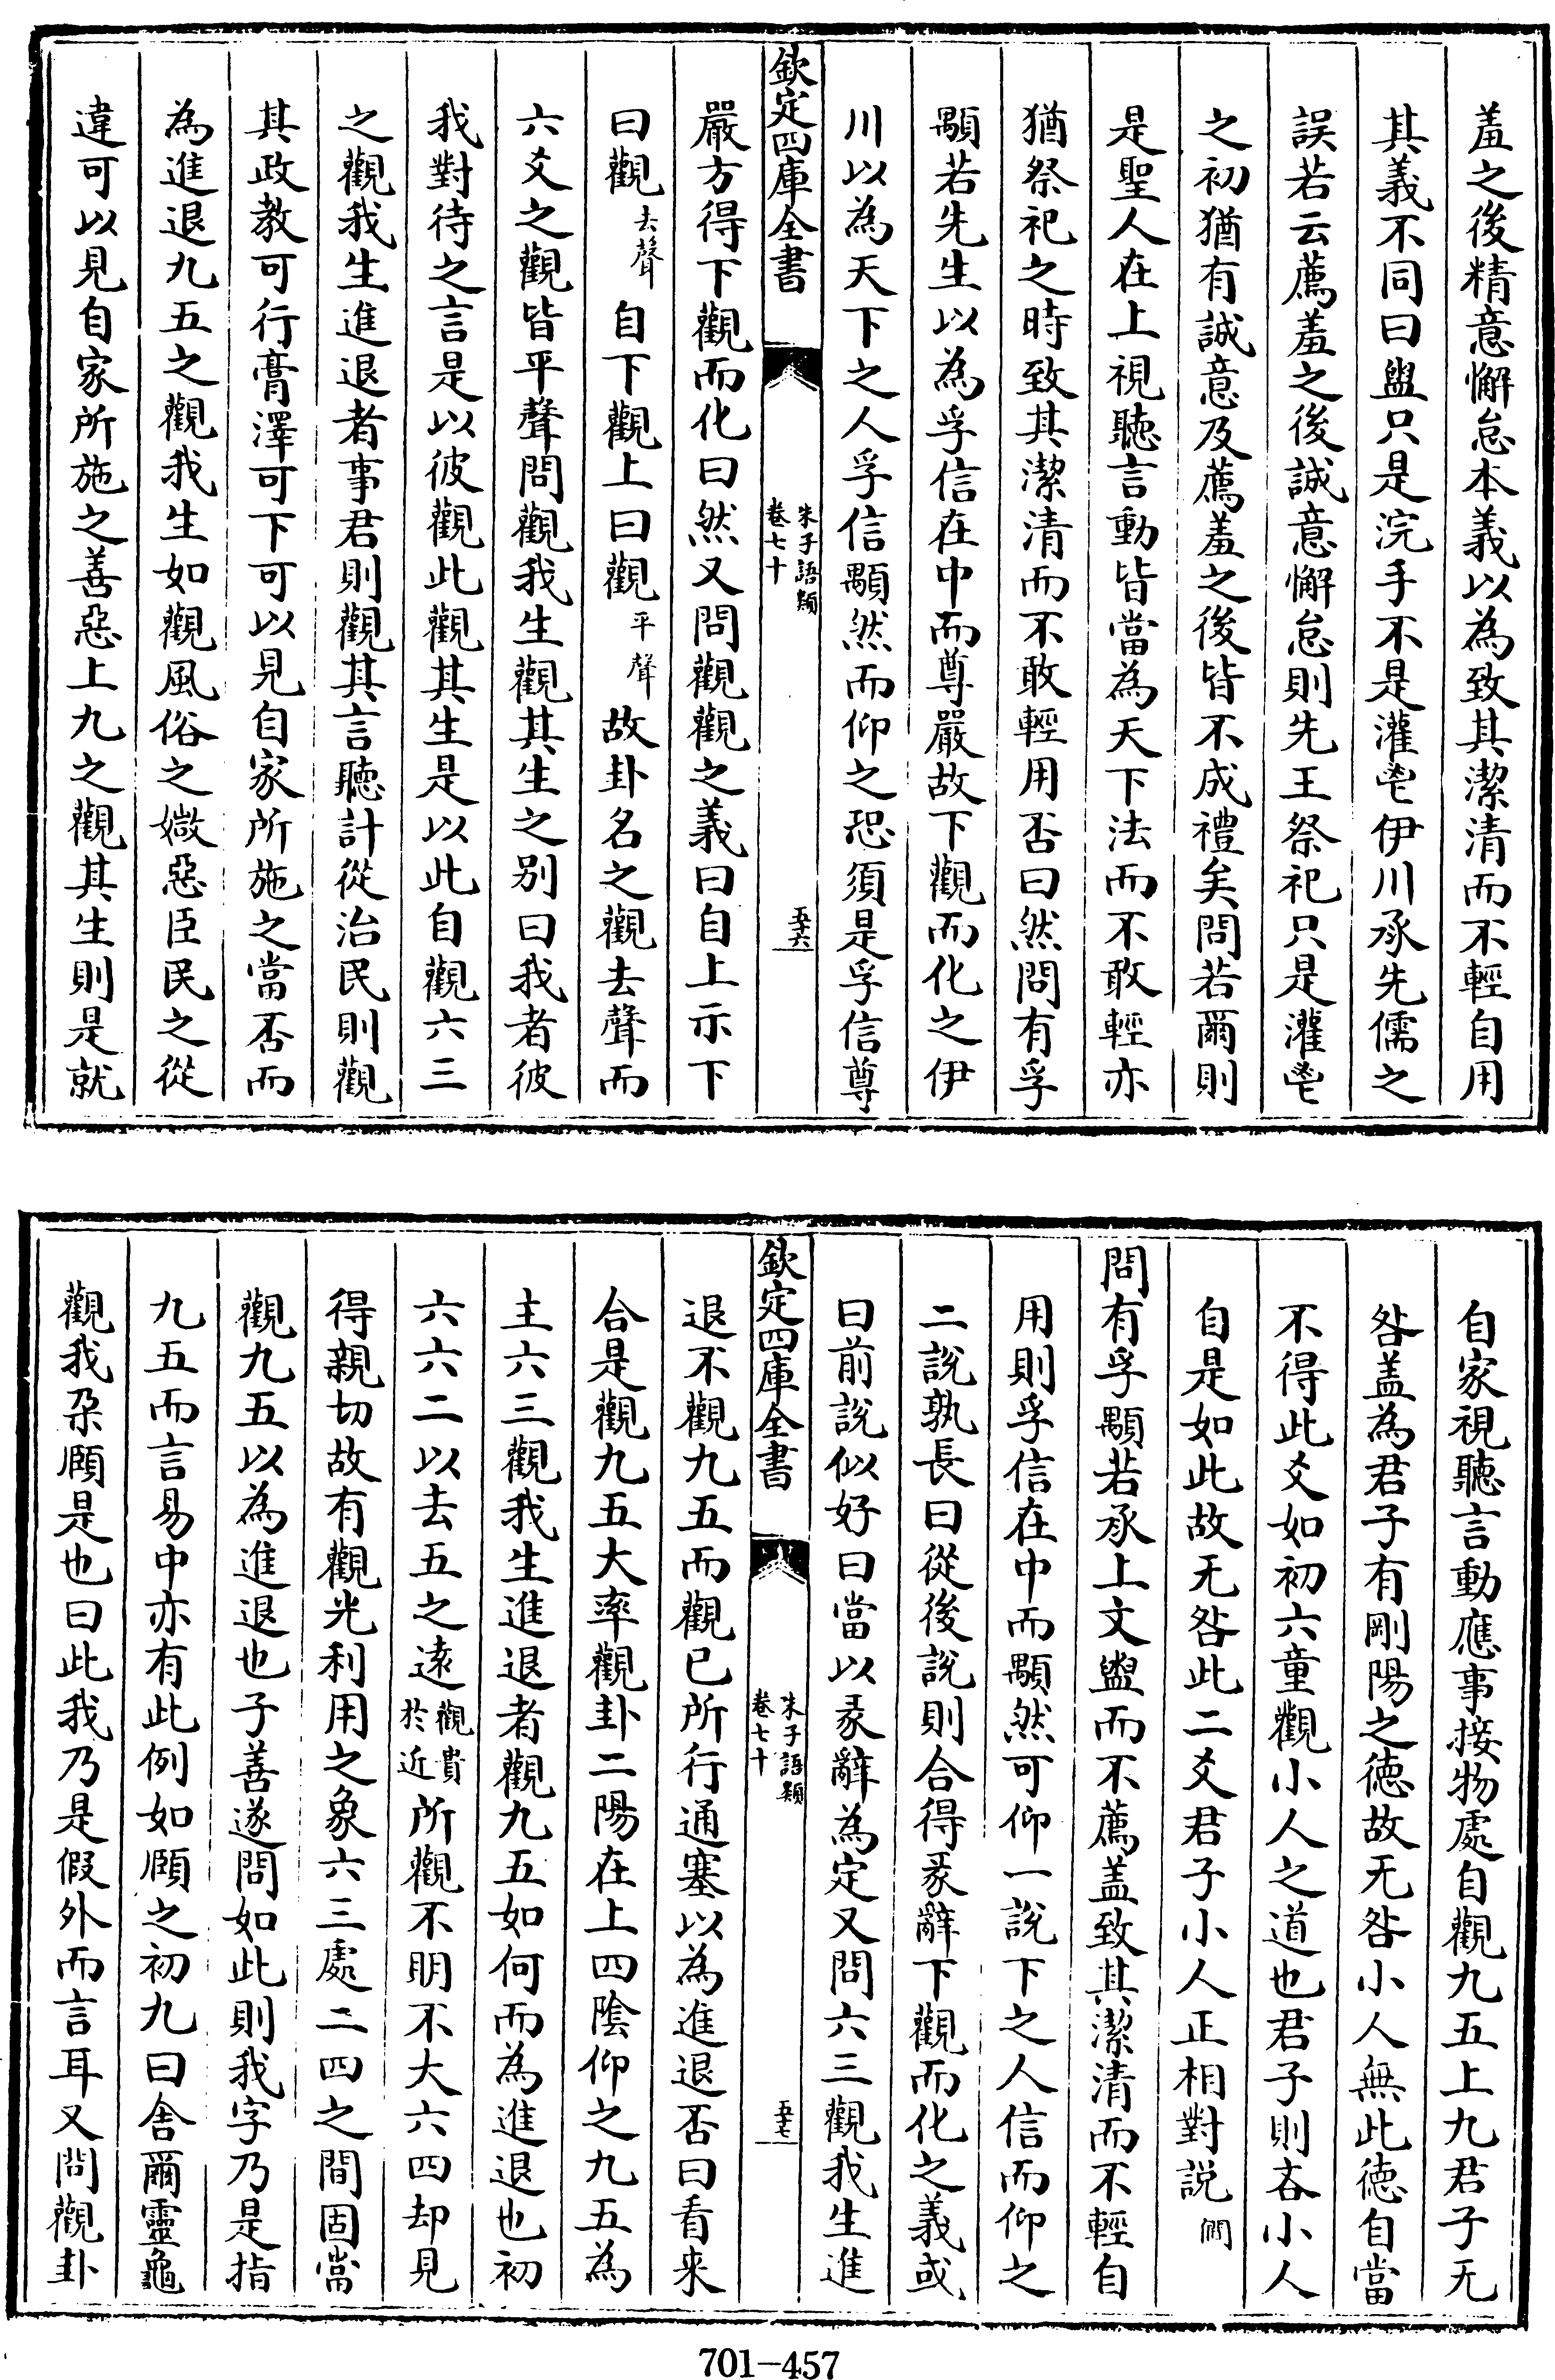 羞之後精意懈怠本義以為致其潔清而不輕自用
其義不同曰盥只是浣手不是灌鬯伊川承先儒之
誤若云薦羞之後誠意懈怠則先王祭祀只是灌鬯
之初猶有誠意及薦羞之後皆不成禮矣問若爾則
是聖人在上視聽言動皆當為天下法而不敢輕亦
猶祭祀之時致其潔清而不敢輕用否曰然問有孚
顒若先生以為孚信在中而尊嚴故下觀而化之伊
川以為天下之人孚信顒然而仰之恐須是孚信尊
欽定四庫全書
朱子語類
卷七十
五十六
嚴方得下觀而化曰然又問觀觀之義曰自上示下
曰觀去聲自下觀上曰觀平聲故卦名之觀去聲而
六爻之觀皆平聲問觀我生觀其生之别曰我者彼
我對待之言是以彼觀此觀其生是以此自觀六三
之觀我生進退者事君則觀其言聽計從治民則觀
其政教可行膏澤可下可以見自家所施之當否而
為進退九五之觀我生如觀風俗之媺惡臣民之從
違可以見自家所施之善惡上九之觀其生則是就
自家視聽言動應事接物處自觀九五上九君子无
咎盖為君子有剛陽之徳故无咎小人無此徳自當
不得此爻如初六童觀小人之道也君子則吝小人
自是如此故无咎此二爻君子小人正相對説㒓
問有孚顒若承上文盥而不薦盖致其潔清而不輕自
用則孚信在中而顒然可仰一說下之人信而仰之
二說孰長曰從後說則合得彖辭下觀而化之義或
曰前說似好曰當以彖辭為定又問六三觀我生進
欽定四庫全書
朱子語類
卷七十
五十七
退不觀九五而觀已所行通塞以為進退否曰看來
合是觀九五大率觀卦二陽在上四陰仰之九五為
主六三觀我生進退者觀九五如何而為進退也初
六六二以去五之逺觀貴於近所觀不明不大六四却見
得親切故有觀光利用之象六三處二四之間固當
觀九五以為進退也子善遂問如此則我字乃是指
九五而言易中亦有此例如頤之初九曰舍爾靈龜
觀我朶頤是也曰此我乃是假外而言耳又問觀卦
701-457